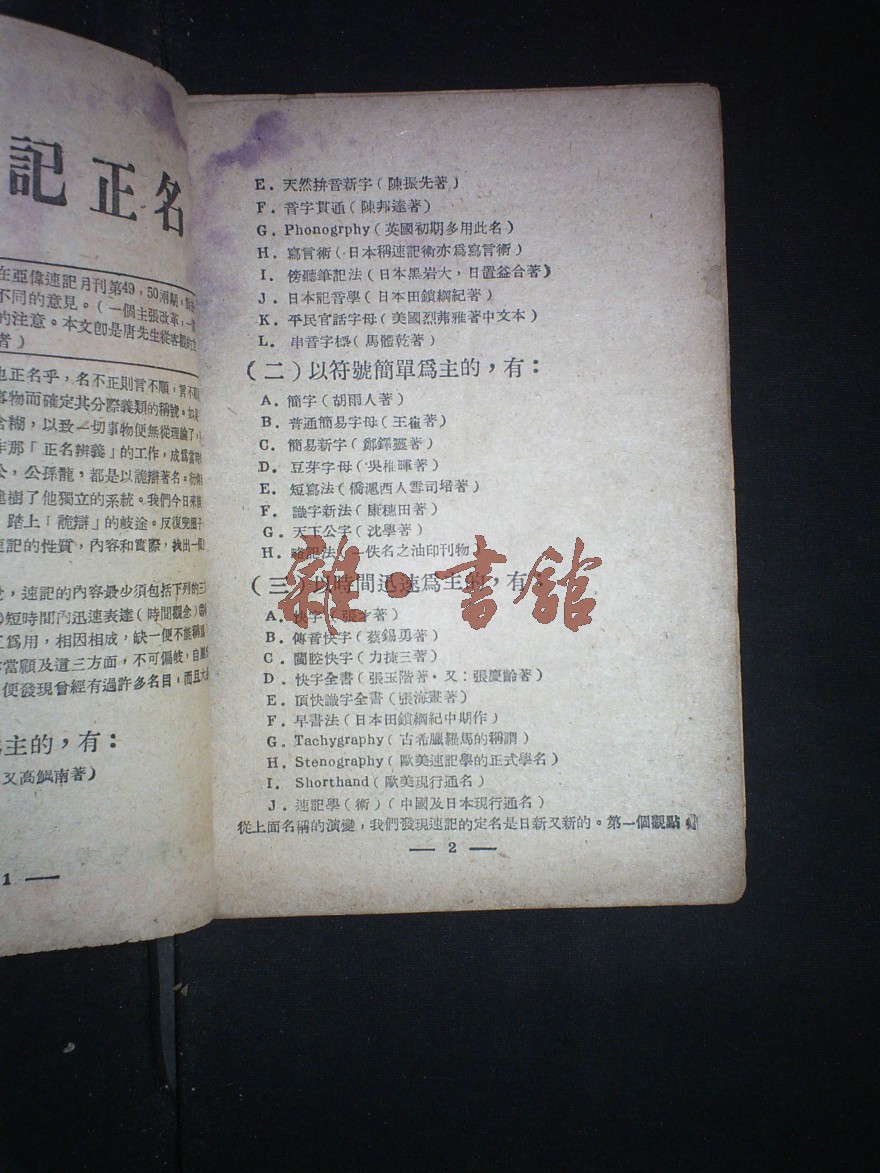 記正名
在亞偉速記月刊第49，50兩期，
不同的意見。（一個主張改革，一
的注意。本文卽是唐先生從客觀的立
者）
也正名乎，名不正則言不順，言不順
事物而確定其分際義類的稱號。如果
含糊，以致一切事物便無從理論了，
作那「正名辨義」的工作，成爲當時
公，公孫龍，都是以詭辯著名。
建樹了他獨立的系統。我們今日來
踏上「詭辯」的岐途。反復兜圈子
速記的性質，內容和實際，找出一個
，速記的內容最少須包括下列的三
）短時間內迅速表達（時間觀念）
互爲用，相因相成，缺一便不能稱爲
當顧及這三方面，不可偏岐，自
便發現曾經有過許多名目，而且大
主的，有：
又高鯤南著）
1
E．天然拚音新字（陳振先著）
F．音字貫通（陳邦達著）
G．Phonogrphy（英國初期多用此名）
H．寫言術（日本稱速記術亦爲寫言術）
I．傍聽筆記法（日本黑岩大，日置益合著）
J．日本記音學（日本田鎖綱紀著）
K．平民官話字母（美國烈弗雅著中文本）
L．串音字標（馬體乾著）
（二）以符號簡單爲主的，有：
A．簡字（胡雨人著）
B．普通簡易字母（王崔著）
C．簡易新字（鄭鐸靈著）
D．豆芽字母（吳稚暉著）
E．短寫法（僑滬西人雲司堦著）
F．識字新法（康穗田著）
G．天下公字（沈學著）
H．略記法（一佚名之油印刊物）
（三）以時間迅速爲主的，有：
A．快字（張才著）
B．傳音快字（蔡錫勇著）
C．閩腔快字（力捷三著）
D．快字全書（張玉階著．又：張慶齡著）
E．頂快識字全書（張海晝著）
F．早書法（日本田鎖綱紀中期作）
G．Tachygraphy（古希臘羅馬的稱謂）
H．Stenography（歐美速記學的正式學名）
I．Shorthand（歐美現行通名）
J．速記學（術）（中國及日本現行通名）
從上面名稱的演變，我們發現速記的定名是日新又新的。第一個觀點
— 2 —
雜·書館